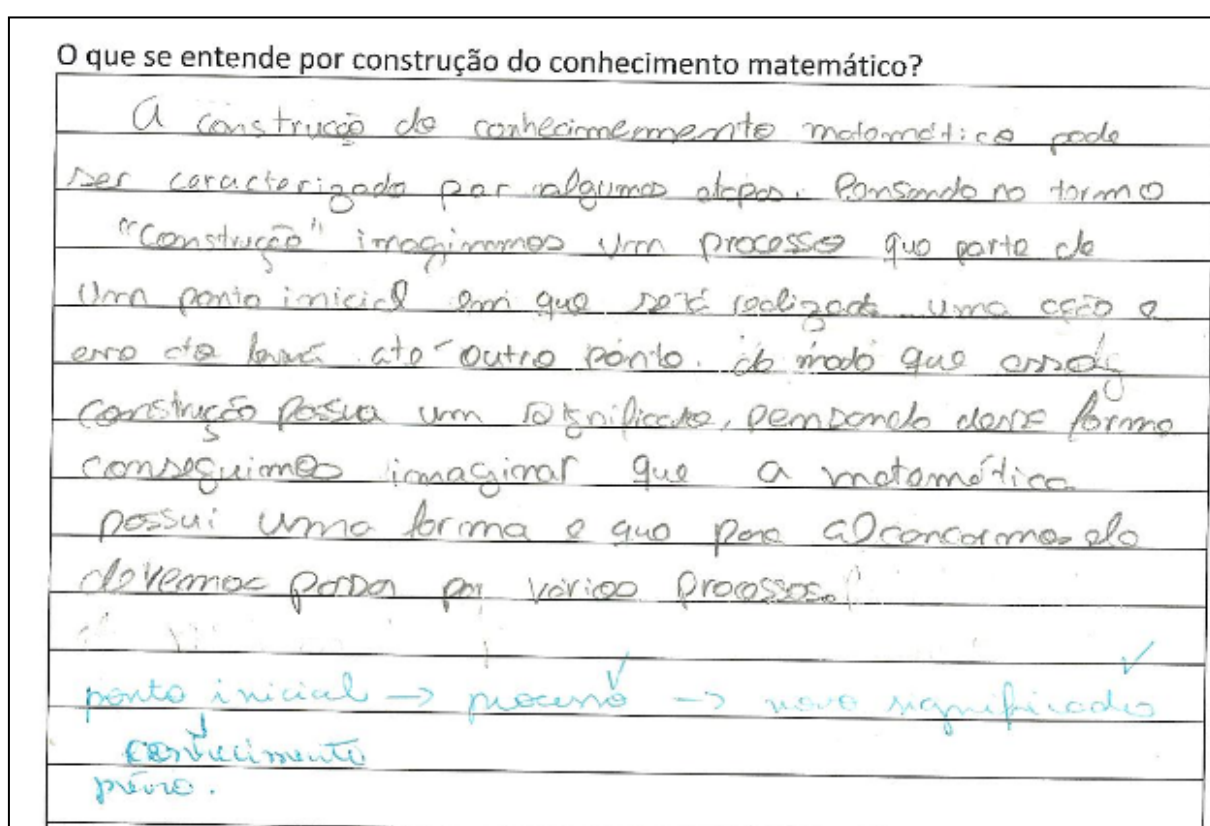 O que se entende por construção do conhecimento matemático?
A construção do conhecimemmento matemático pode
ser caracterizado por algumas etapas. Pensando no termo
"Construção" imaginamos um processo que parte de
um ponto inicial em que será realizada uma ação e
até outro ponto. de modo que essa
construção possua um significado, pensando dessa forma
conseguimos imaginar que a matemática
possui uma forma e que para alcançarmos ela
devemos passar por vários processos.
ponto inicial → processo ✓ → novo significado ✓
↓
conhecimento
prévio.